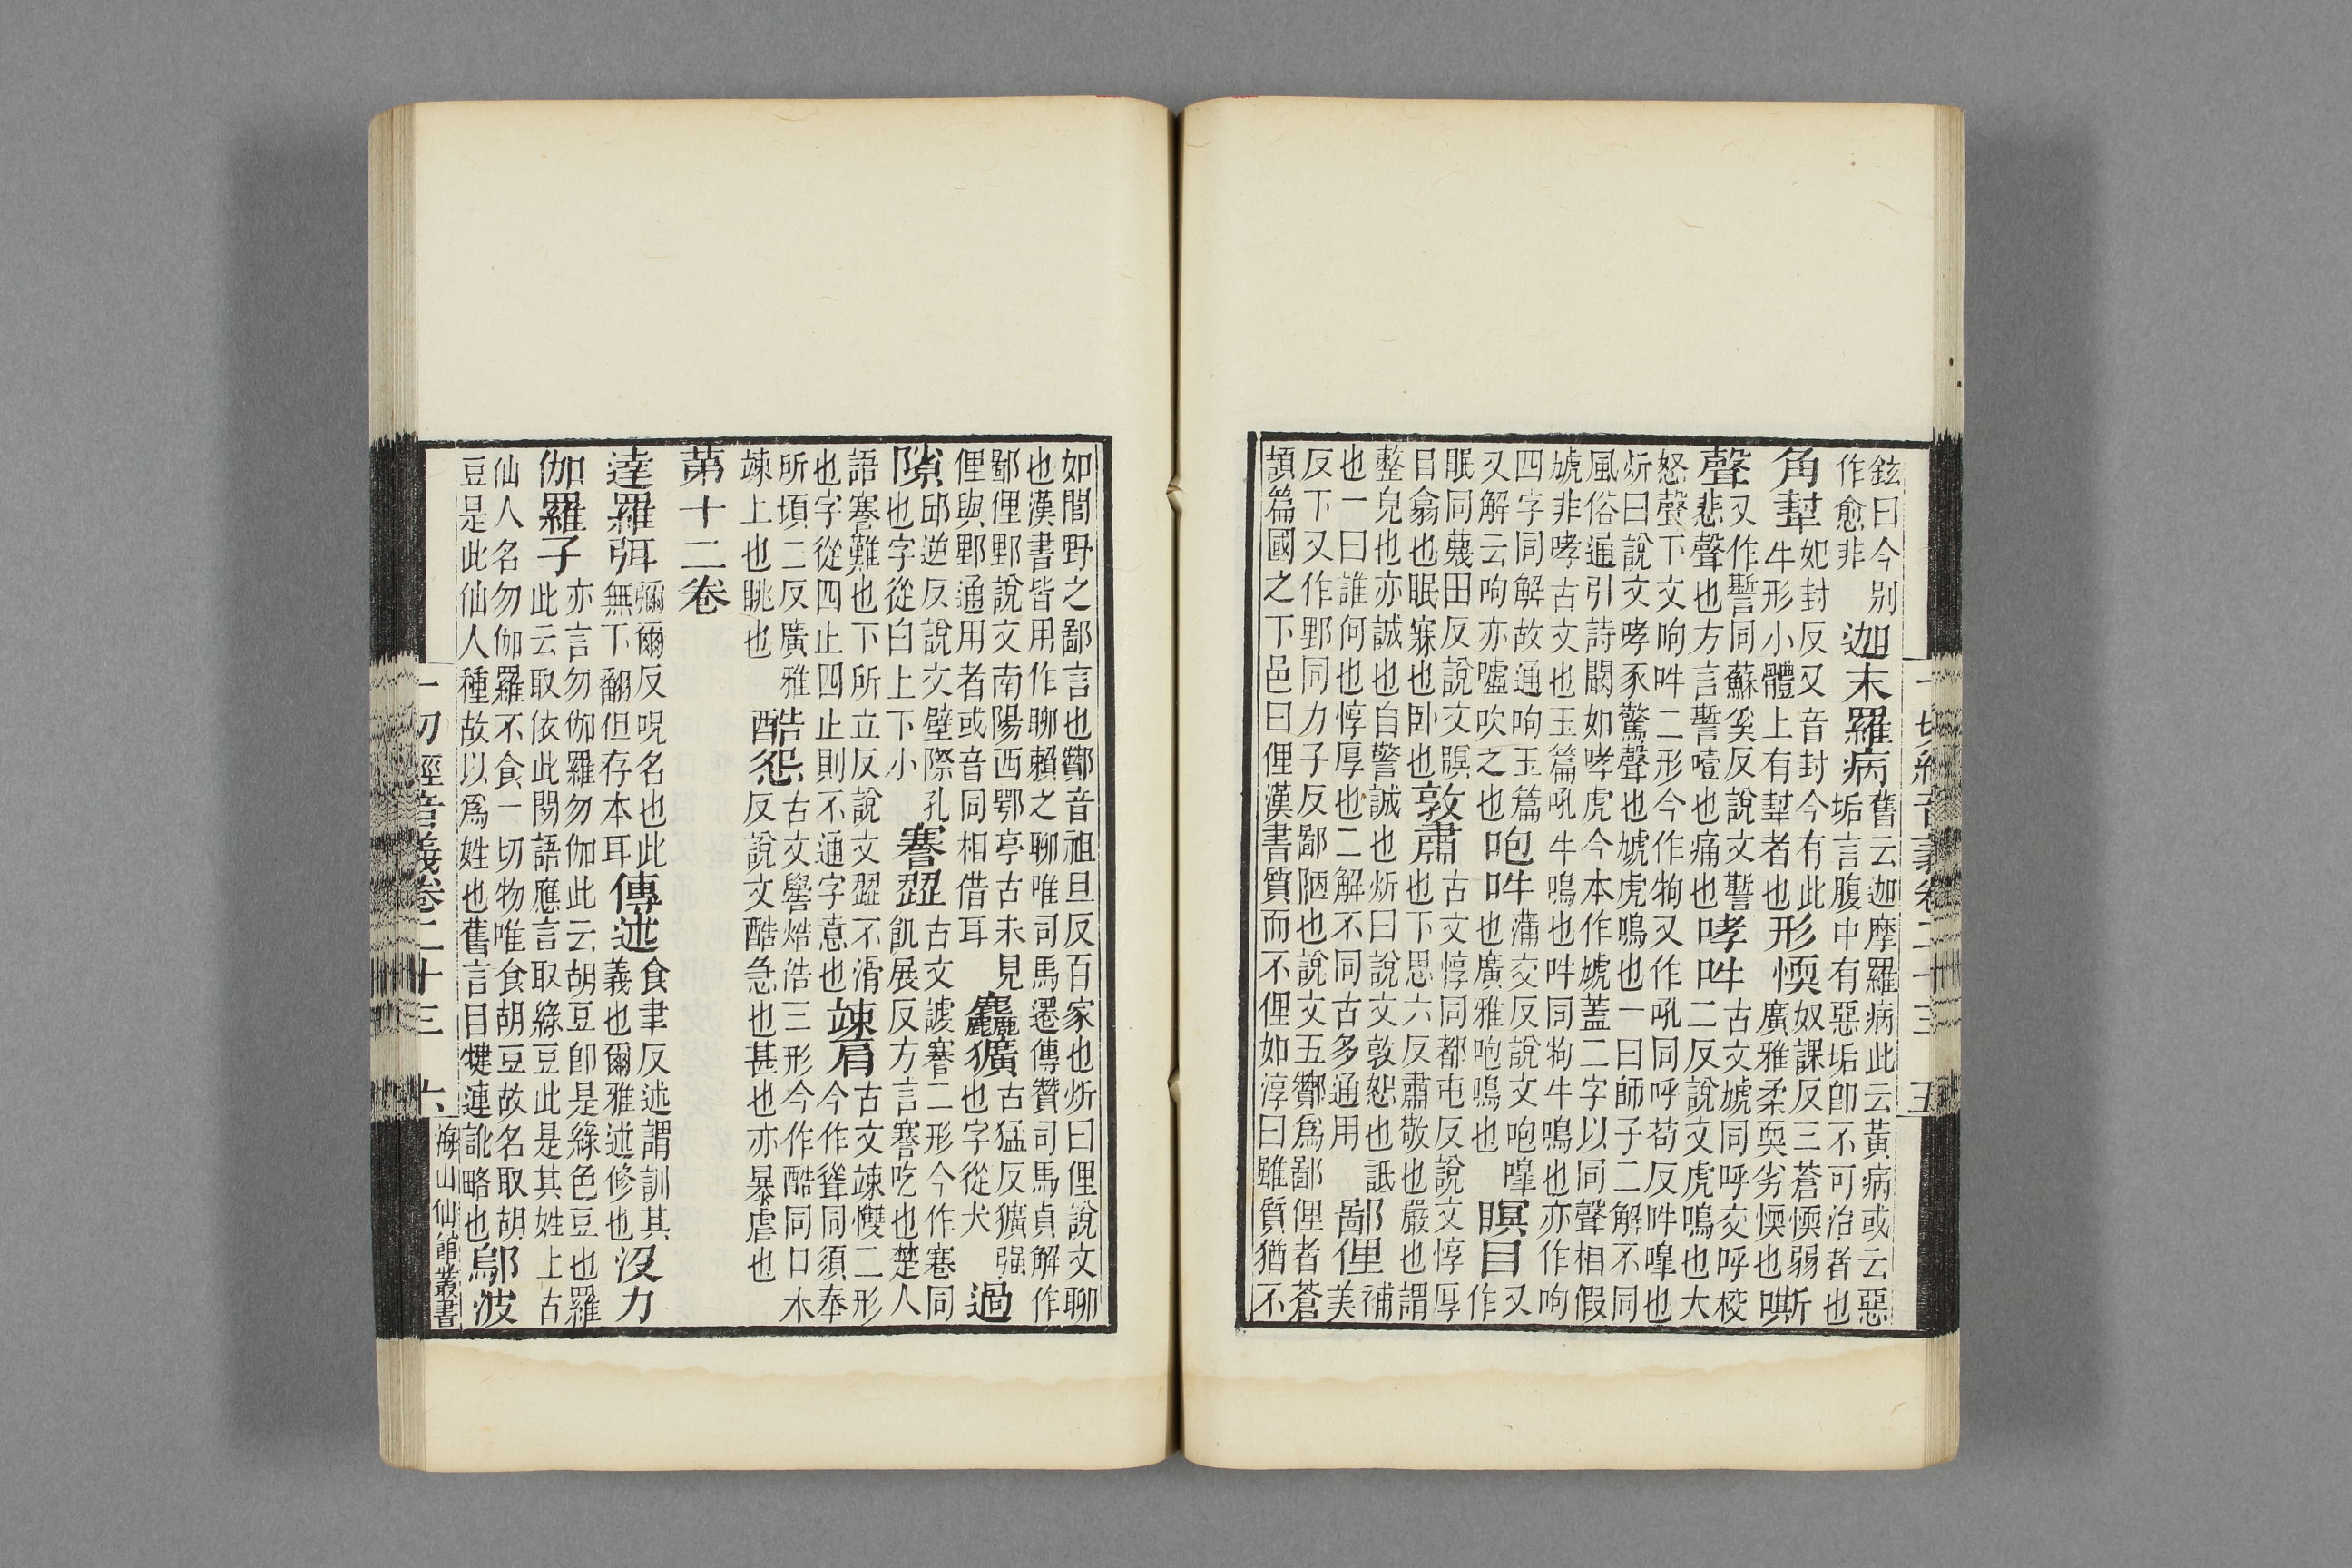 鉉曰今别作愈非迦末羅病舊云迦摩羅病此云黃病或云惡垢言腹中有惡垢卽不可治者也
角犎妃封反又音封今有此牛形小體上有犎者也形愞奴課反三蒼愞弱廣雅柔耎劣愞也嘶
聲又作誓同蘇奚反說文誓悲聲也方言誓噎也痛也哮吽古文虓同呼交呼校二反說文虎鳴也大
怒聲下文呴吽二形今作㸸又作吼同呼苟反吽㗅也炘曰說文哮豕驚聲也虓虎鳴也一曰師子二解不同
風俗通引詩闞如哮虎今本作虓蓋二字以同聲相假虓非哮古文也玉篇吼牛鳴也吽同㸸牛鳴也亦作呴
四字同解故通呴玉篇又解云呴亦噓吹之也咆吽蒲交反說文咆㗅也廣雅咆鳴也瞑目又作
眠同蔑田反說文瞑目翕也眠寐也卧也敦肅古文惇同都屯反說文惇厚也下思六反肅敬也嚴也謂
整皃也亦誡也自警誡也炘曰說文敦恕也詆也一曰誰何也惇厚也二解不同古多通用鄙俚補美
反下又作野同力子反鄙陋也說文五酇爲鄙俚者蒼頡篇國之下邑曰俚漢書質而不俚如淳曰雖質猶不
一切經音義卷二十三 五
如閭野之鄙言也酇音祖旦反百家也炘曰俚說文聊也漢書皆用作聊賴之聊唯司馬遷傳贊司馬貞解作
鄙俚野說文南陽西鄂亭古未見俚與野通用者或音同相借耳麤獷古猛反獷强也字從犬過
隙邱逆反說文壁際孔也字從白上下小謇澀古文謇二形今作蹇同飢展反方言謇吃也楚人
語謇難也下所立反說文澀不滑也字從四止四止則不通字意也竦肩古文竦㦼二形今作聳同須奉
所項二反廣雅竦上也跳也酷怨古文嚳焅俈三形今作酷同口木反說文酷急也甚也亦暴虐也
第十二卷
達羅弭彌爾反呪名也此無下翻但存本耳傳述食聿反述謂訓其義也爾雅述修也沒力
伽羅子亦言勿伽羅勿伽此云胡豆卽是綠色豆也羅此云取依此閒語應言取綠豆此是其姓上古
仙人名勿伽羅不食一切物唯食胡豆故名取胡豆是此仙人種故以爲姓也舊言目犍連訛略也鄔波
一切經音義卷二十三 六
海山仙館叢書